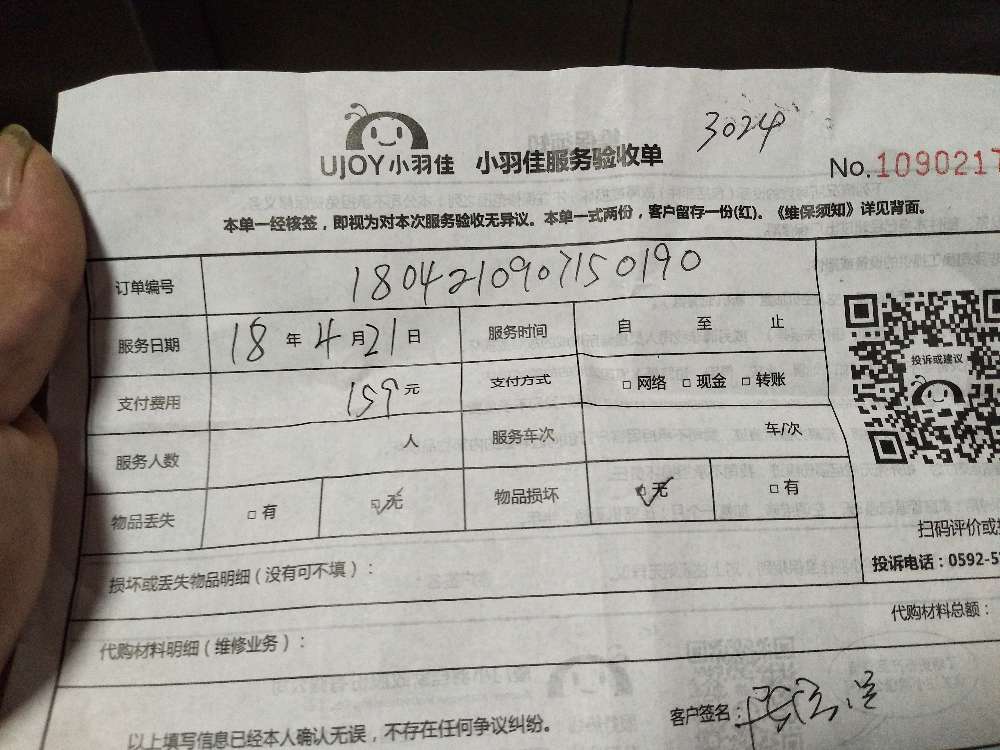 3024
UJOY小羽佳 小羽佳服务验收单
No.1090217
本单一经核签，即视为对本次服务验收无异议。本单一式两份，客户留存一份(红)。《维保须知》详见背面。
订单编号 1804210907150190
服务日期 18年4月21日 服务时间 自 至 止
支付费用 159元 支付方式 □网络 □现金 □转账
投诉或建议
服务人数 人 服务车次 车/次
物品丢失 □有 □无 物品损坏 □无 □有
扫码评价或
损坏或丢失物品明细（没有可不填）：
投诉电话：0592-5
代购材料明细（维修业务）：
代购材料总额：
以上填写信息已经本人确认无误，不存在任何争议纠纷。
客户签名：